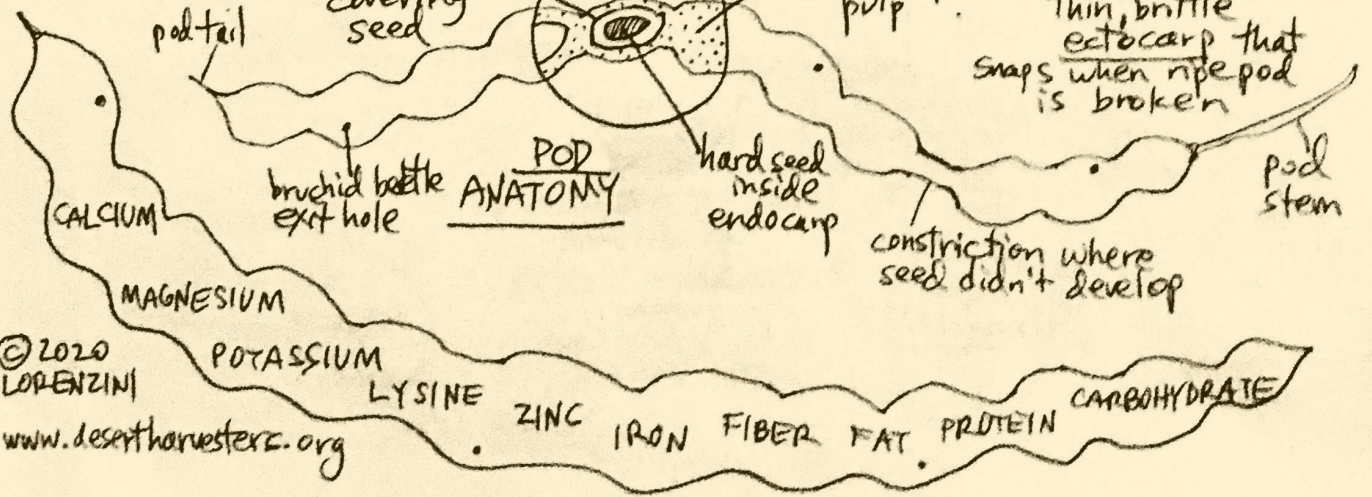 covering
seed
pod tail
pulp
Thin, brittle
ectocarp that
snaps when ripe pod
is broken
pod
stem
bruchid beetle
exit hole
POD
ANATOMY
hard seed
inside
endocarp
constriction where
seed didn't develop
CALCIUM
MAGNESIUM
POTASSIUM
LYSINE
ZINC
IRON
FIBER
FAT
PROTEIN
CARBOHYDRATE
©2020
LORENZINI
www.desertharvesters.org